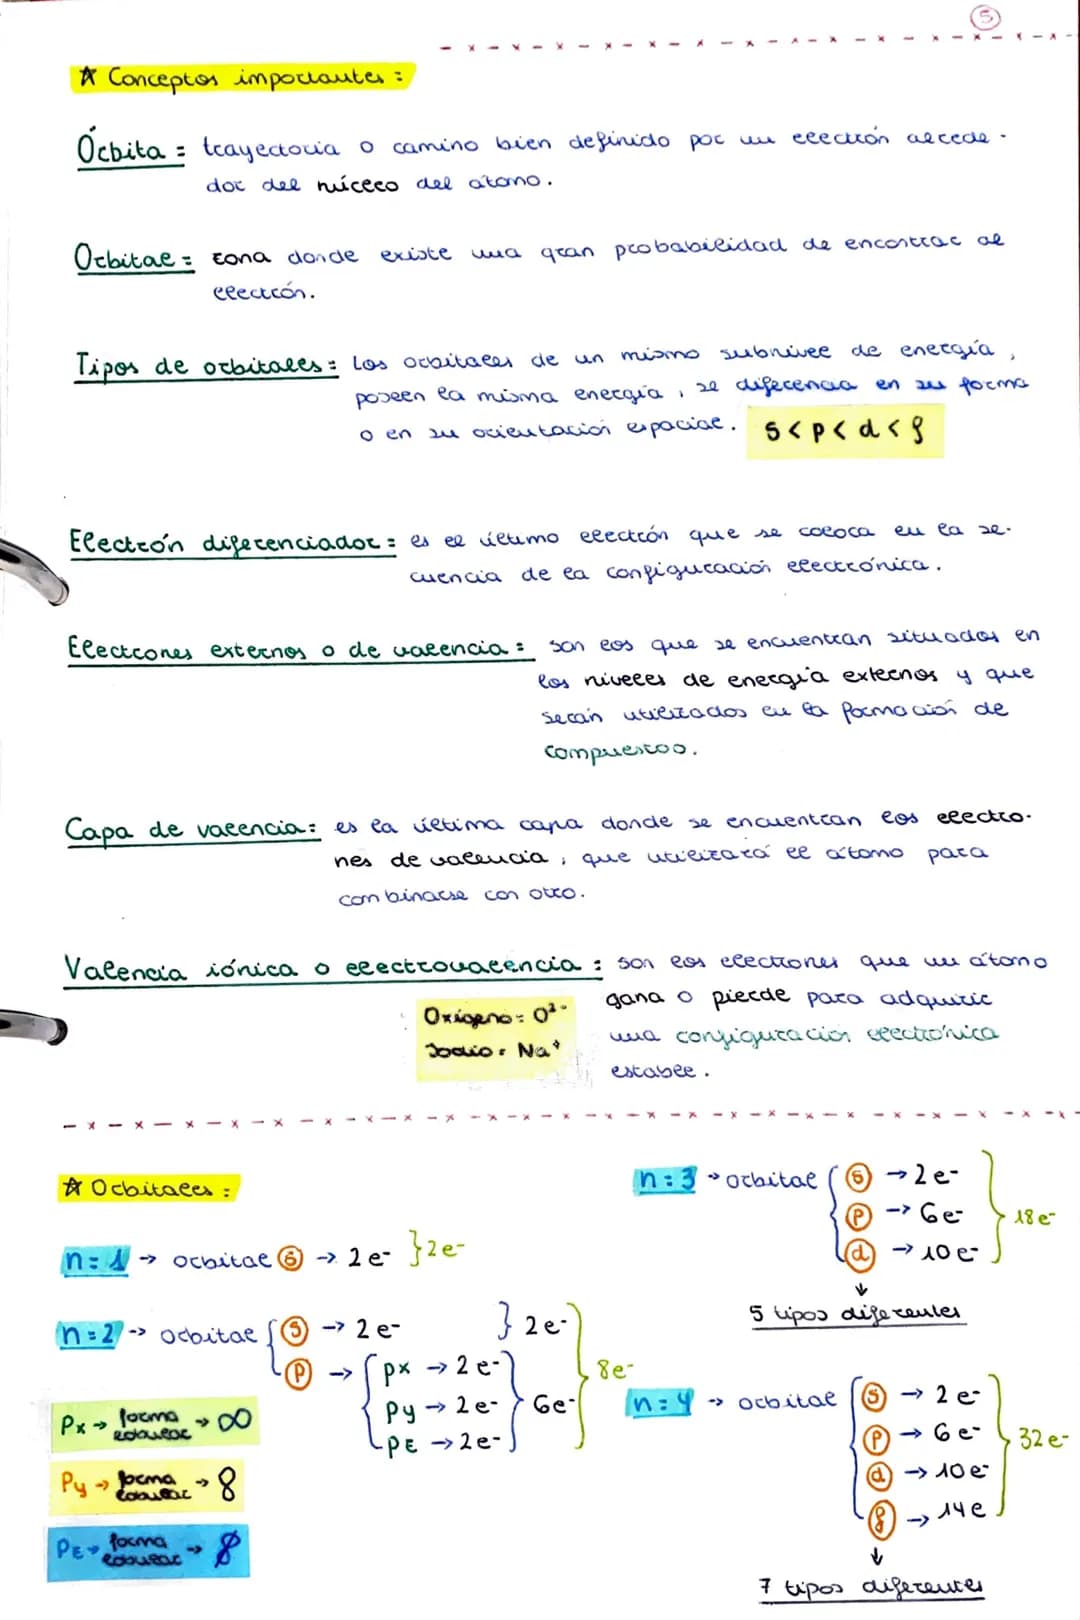 5
☆ Conceptos importantes:
Órbita: trayectoria o camino bien definido por un electrón alrede-
dor del núcleo del átomo.
Orbital: zona donde existe una gran probabilidad de encontrar al
electrón.
Tipos de orbitales: Los orbitales de un mismo subnivel de energía,
poseen la misma energía, se diferencia en su forma
o en su orientación espacial. s<p<d<f
Electrón diferenciador: es el último electrón que se coloca en la se-
cuencia de la configuración electrónica.
Electrones externos o de valencia: son los que se encuentran situados en
los niveles de energía externos y que
serán utilizados en la formación de
compuestos.
Capa de valencia: es la última capa donde se encuentran los electro-
nes de valencia, que utilizará el átomo para
combinarse con otro.
Valencia iónica o electrovalencia: son los electrones que un átomo
gana o pierde para adquirir
una configuración electrónica
estable.
Oxígeno: O²⁻
Sodio: Na⁺
☆ Orbitales:
n=1 → orbital s → 2e⁻ } 2e⁻
n=2 → orbital { s → 2e⁻ } 2e⁻
p → { px → 2e⁻
py → 2e⁻ } 6e⁻ } 8e⁻
pz → 2e⁻
Px → forma lobular → ∞
Py → forma lobular → 8
Pz → forma lobular → 8
n=3 → orbital { s → 2e⁻
p → 6e⁻ } 18e⁻
d → 10e⁻
↓
5 tipos diferentes
n=4 → orbital { s → 2e⁻
p → 6e⁻ } 32e⁻
d → 10e⁻
f → 14e
↓
7 tipos diferentes